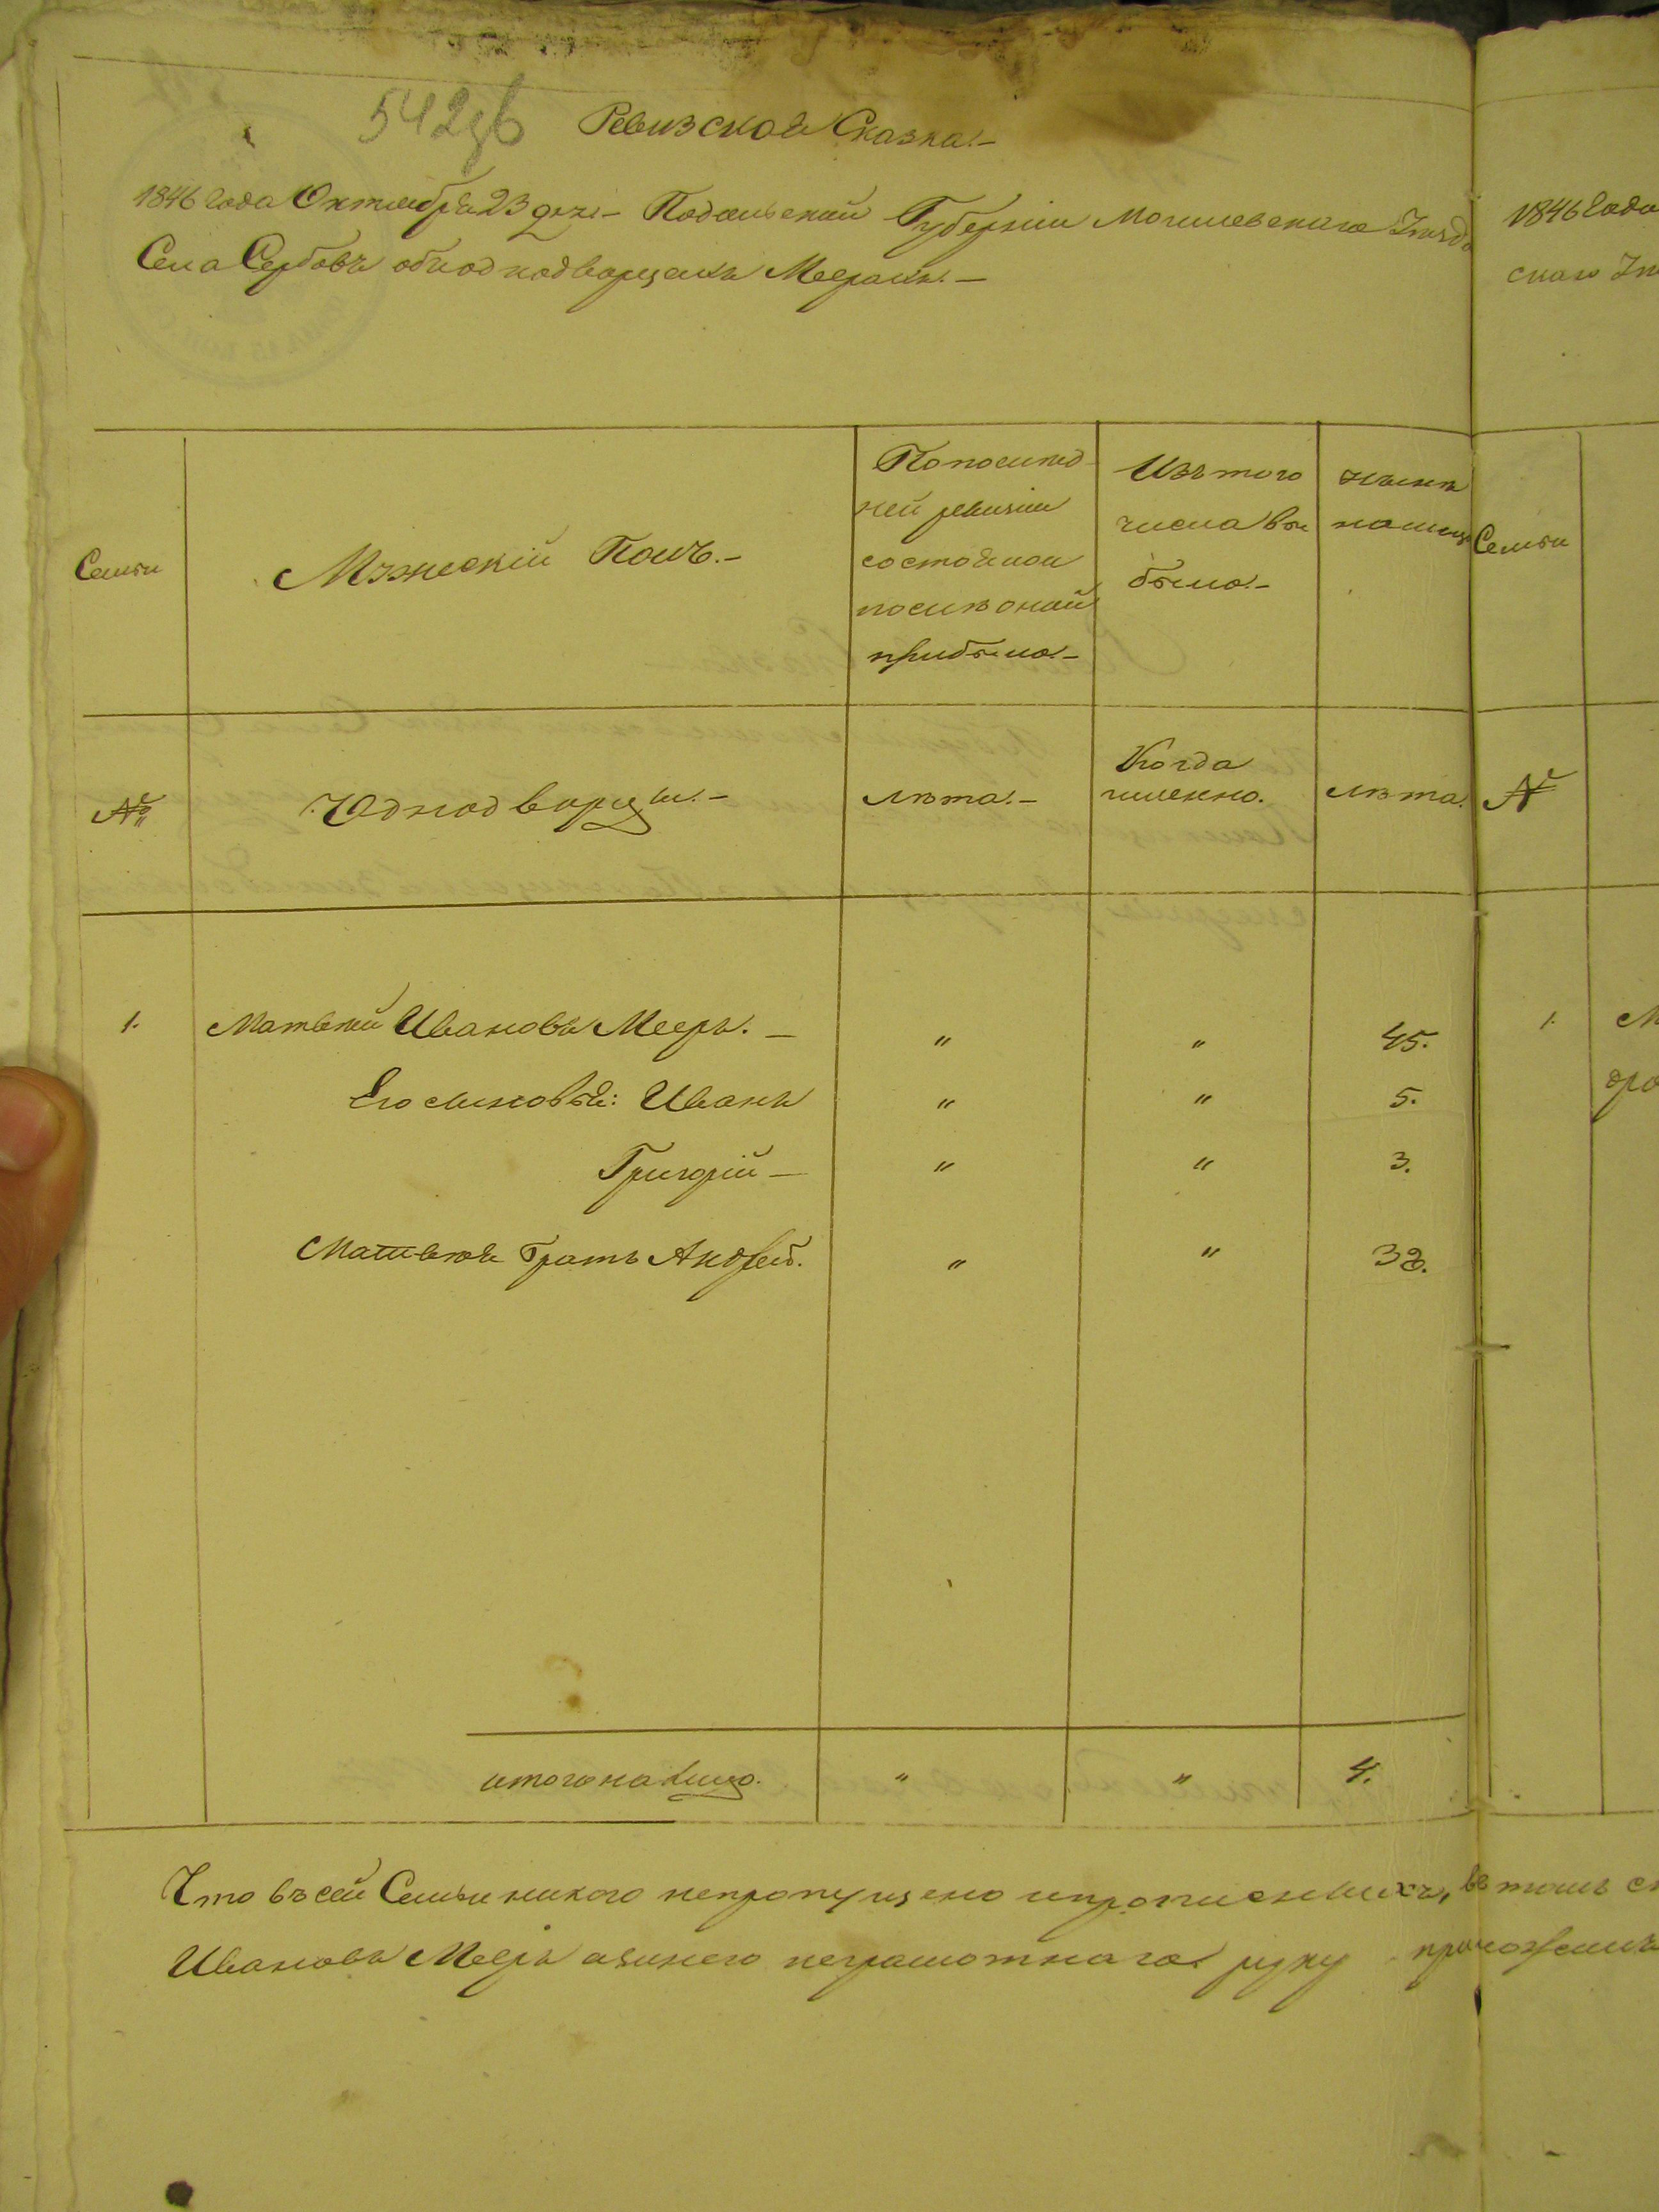 542зв
Ревизская Сказка.-
1846 года Октября 23 дня - Подольской Губернии Могилевского Уезда
Села Сербовъ об однодворцахъ Меерахъ.-
Семьи
Мужескій Полъ.-
По послед-
ней ревизіи
состояло и
после оной
прибыло.-
Изъ того
числа вы
было.-
ныне
на лицо
№
Однодворцы.-
лета.-
Когда
именно.
лета.
1. Матвей Ивановъ Мееръ. - " " 45.
Его сыновья: Иванъ " " 5.
Григорій - " " 3.
Матвея братъ Андрей. " " 32.
итого на лицо. " " 4.
Что въ сей Семьи никого непропущено и прописныхъ, въ томъ
Ивановъ Мееръ а за него неграмотнаго руку приложилъ
1846 года
скаго
Семьи
№
1.